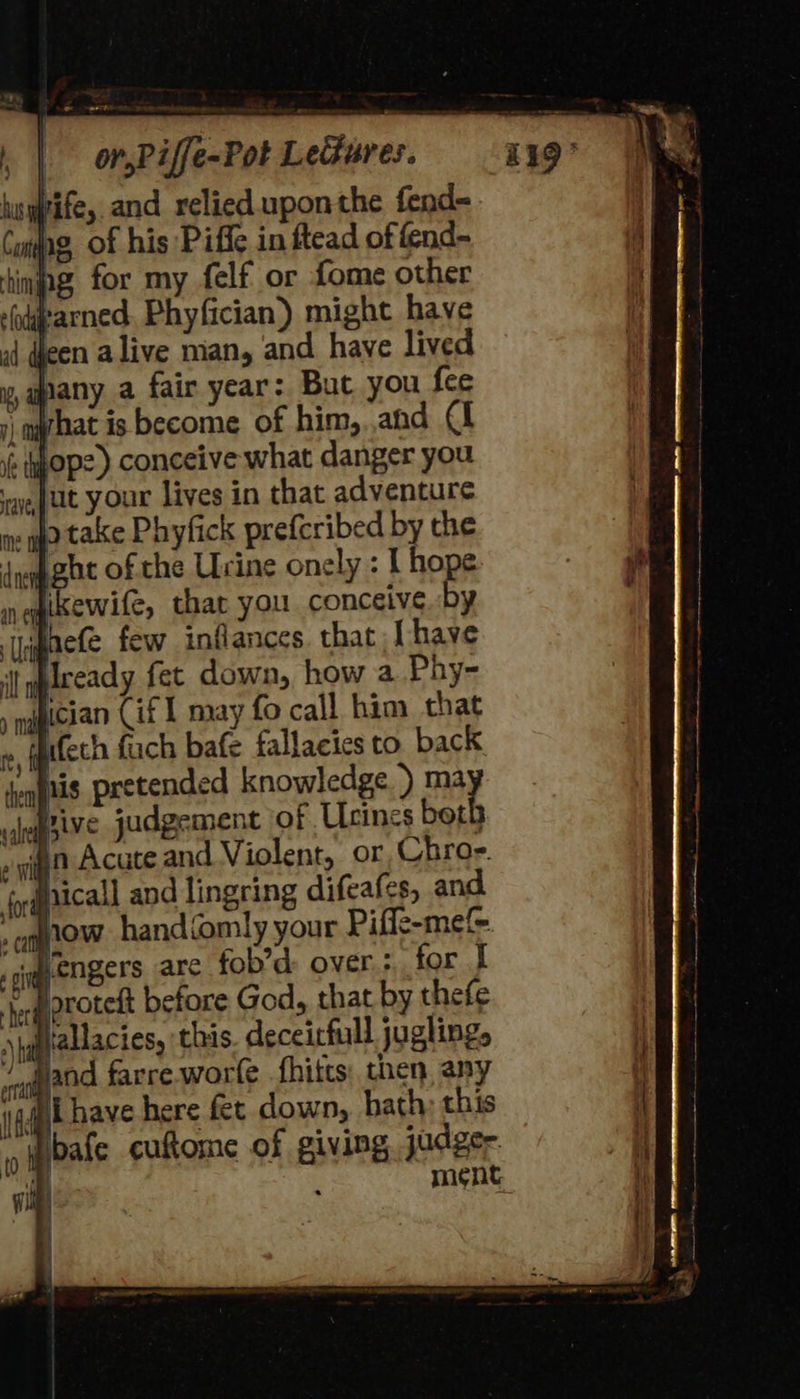 or, Pisse-Pot Lectures. 119
ſe, and relied upon the ſend-
of his Piſſe in ſtead of ſend-
for my ſelf or ſome other
Phyſician) might have
a live man, and have lived
many a fair year: But you ſee
what is become of him, and (I
hope) conceive what danger you
put your lives in that adventure
to take Phyſick preſcribed by the
ſight of the Urine onely : I hope
likewiſe, that you conceive by
theſe few inſtances that I have
already ſet down, how a Phy-
ſician (if I may ſo call him that
uſeth ſuch baſe fallacies to back
his pretended knowledge ) may
give judgement of Urines both
in Acute and Violent, or Chro-
nicall and lingring diſeaſes, and
how handſomly your Piſſe-meſ-
ſengers are fob'd over : for I
proteſt before God, that by theſe
fallacies, this deceitfull jugling,
and farre worſe ſhifts then any
I have here ſet down, hath this
baſe cuſtome of giving judge-
ment